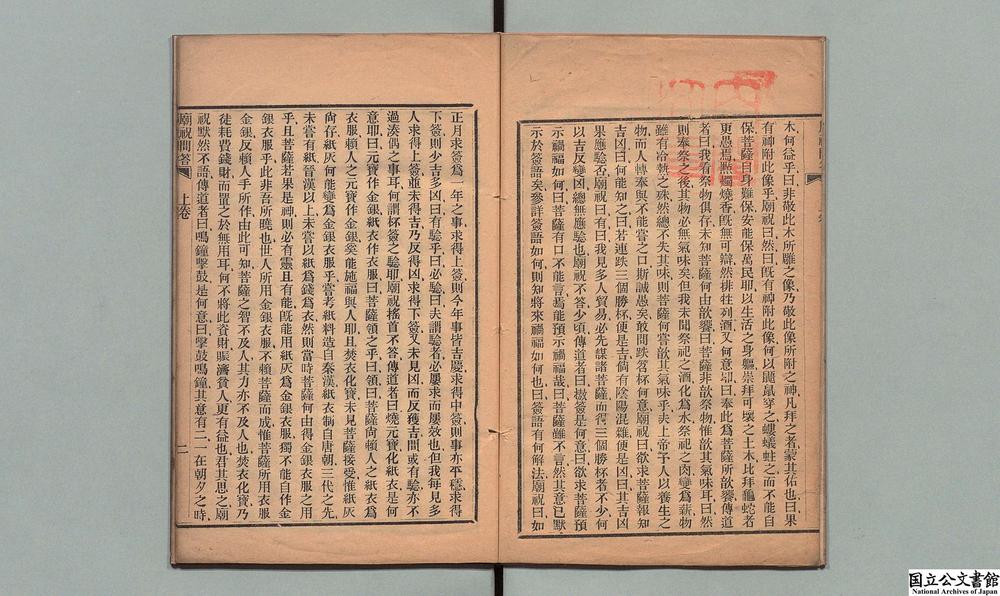 木何益乎曰非敬此木所雕之像乃敬此像所附之神凡拜之者蒙其佑也曰果
有神附此像乎廟祝曰然曰既有神附此像何以鼠穿之螻蟻蛀之而不能自
保菩薩自身難保安能保萬民耶以生活之身軀崇拜可壞之土木比拜龜蛇者
更愚焉點燭燒香既無可辯然排牲列酒又何意耶曰奉此爲菩薩所歆饗傳道
者曰我看祭物俱存未知菩薩何由歆饗曰菩薩非歆祭物惟歆其氣味耳曰然
則奉祭之後其物必無氣味矣但我未聞祭祀之酒化爲水祭祀之肉變爲薪物
雖有冷熱之殊然總不失其味則菩薩何嘗歆其氣味乎夫上帝予人以養生之
物而人轉奉與不能嘗之口斯誠愚矣敢問跌筶杯何意廟祝曰欲求菩薩報知
吉凶曰何能知之曰若連跌三個勝杯便是吉倘有陰陽混雜便是凶曰其吉凶
果應驗否廟祝曰有曰我見多人貿易必先謀諸菩薩而得三個勝杯者不少何
以吉反變凶總無應驗也廟祝不答少頃傳道者曰檄簽是何意曰欲求菩薩預
示禍福如何曰菩薩有口不能言焉能預示禍福哉曰菩薩雖不言然其意已默
示於簽語矣參詳簽語如何則知將來禍福如何也曰簽語有何解法廟祝曰如
正月求簽爲一年之事求得上簽則今年事皆吉慶求得中簽則事亦平穩求得
下簽則少吉多凶曰有驗乎曰必驗曰夫謂驗者必屢求而屢效也但我每見多
人求得上簽並未得吉乃反得凶求得下簽又未見凶而反獲吉間或有驗亦不
過湊偶之事耳何謂杯簽之驗耶廟祝搖首不答傳道者曰燒元寶化紙衣是何
意耶曰元寶作金銀紙衣作衣服曰菩薩領之乎曰領曰菩薩尙賴人之紙衣爲
衣服賴人之元寶作金銀奚能施福與人耶且焚衣化寶未見菩薩接受惟紙灰
尙存紙灰何能變爲金銀衣服乎嘗考紙料造自秦漢紙衣制自唐朝三代之先
未嘗有紙晉漢以上未嘗以紙爲錢爲衣然則當時菩薩何由得金銀衣服之用
乎且菩薩若果是神則必有靈且有能既能用紙灰爲金銀衣服獨不能自作金
銀衣服乎此非吾所曉也世人所用金銀衣服不賴菩薩而成惟菩薩所用衣服
金銀反賴人手所作由此可知菩薩之智不及人其力亦不及人也焚衣化寶乃
徒耗費錢財而置之於無用耳何不將此資財賑濟貧人更有益也君其思之廟
祝默然不語傳道者曰鳴鐘擊鼓是何意曰擊鼓鳴鐘其意有二一在朝夕之時
廟祝問答 上卷 二
国立公文書館
National Archives of Japan